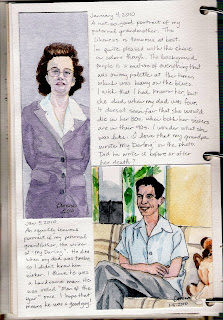 January 4, 2010
A not so good portrait of my
paternal grandmother. The
likeness is tenuous at best.
I'm quite pleased with the choice
in colors though. The background
purple is a mixture of everything that
was on my palette at the time
which was heavy on the blues.
I wish that I had known her, but
she died when my dad was four.
It doesn't seem fair that she would
die in her 20s when both her sisters
are in their 90s. I wonder what she
was like. I love that my grandpa
wrote "My Darling" on the photo.
Did he write it before or after
her death?
Jan 5, 2010
An equally tenuous
portrait of my paternal
grandfather, the writer
of "My Darling". He died
when my dad was twelve
so I didn't know him
either. I think he was
a handsome man. He
was voted "Man of the
Year" once. I hope that
means he was a good guy!
1/5/2010